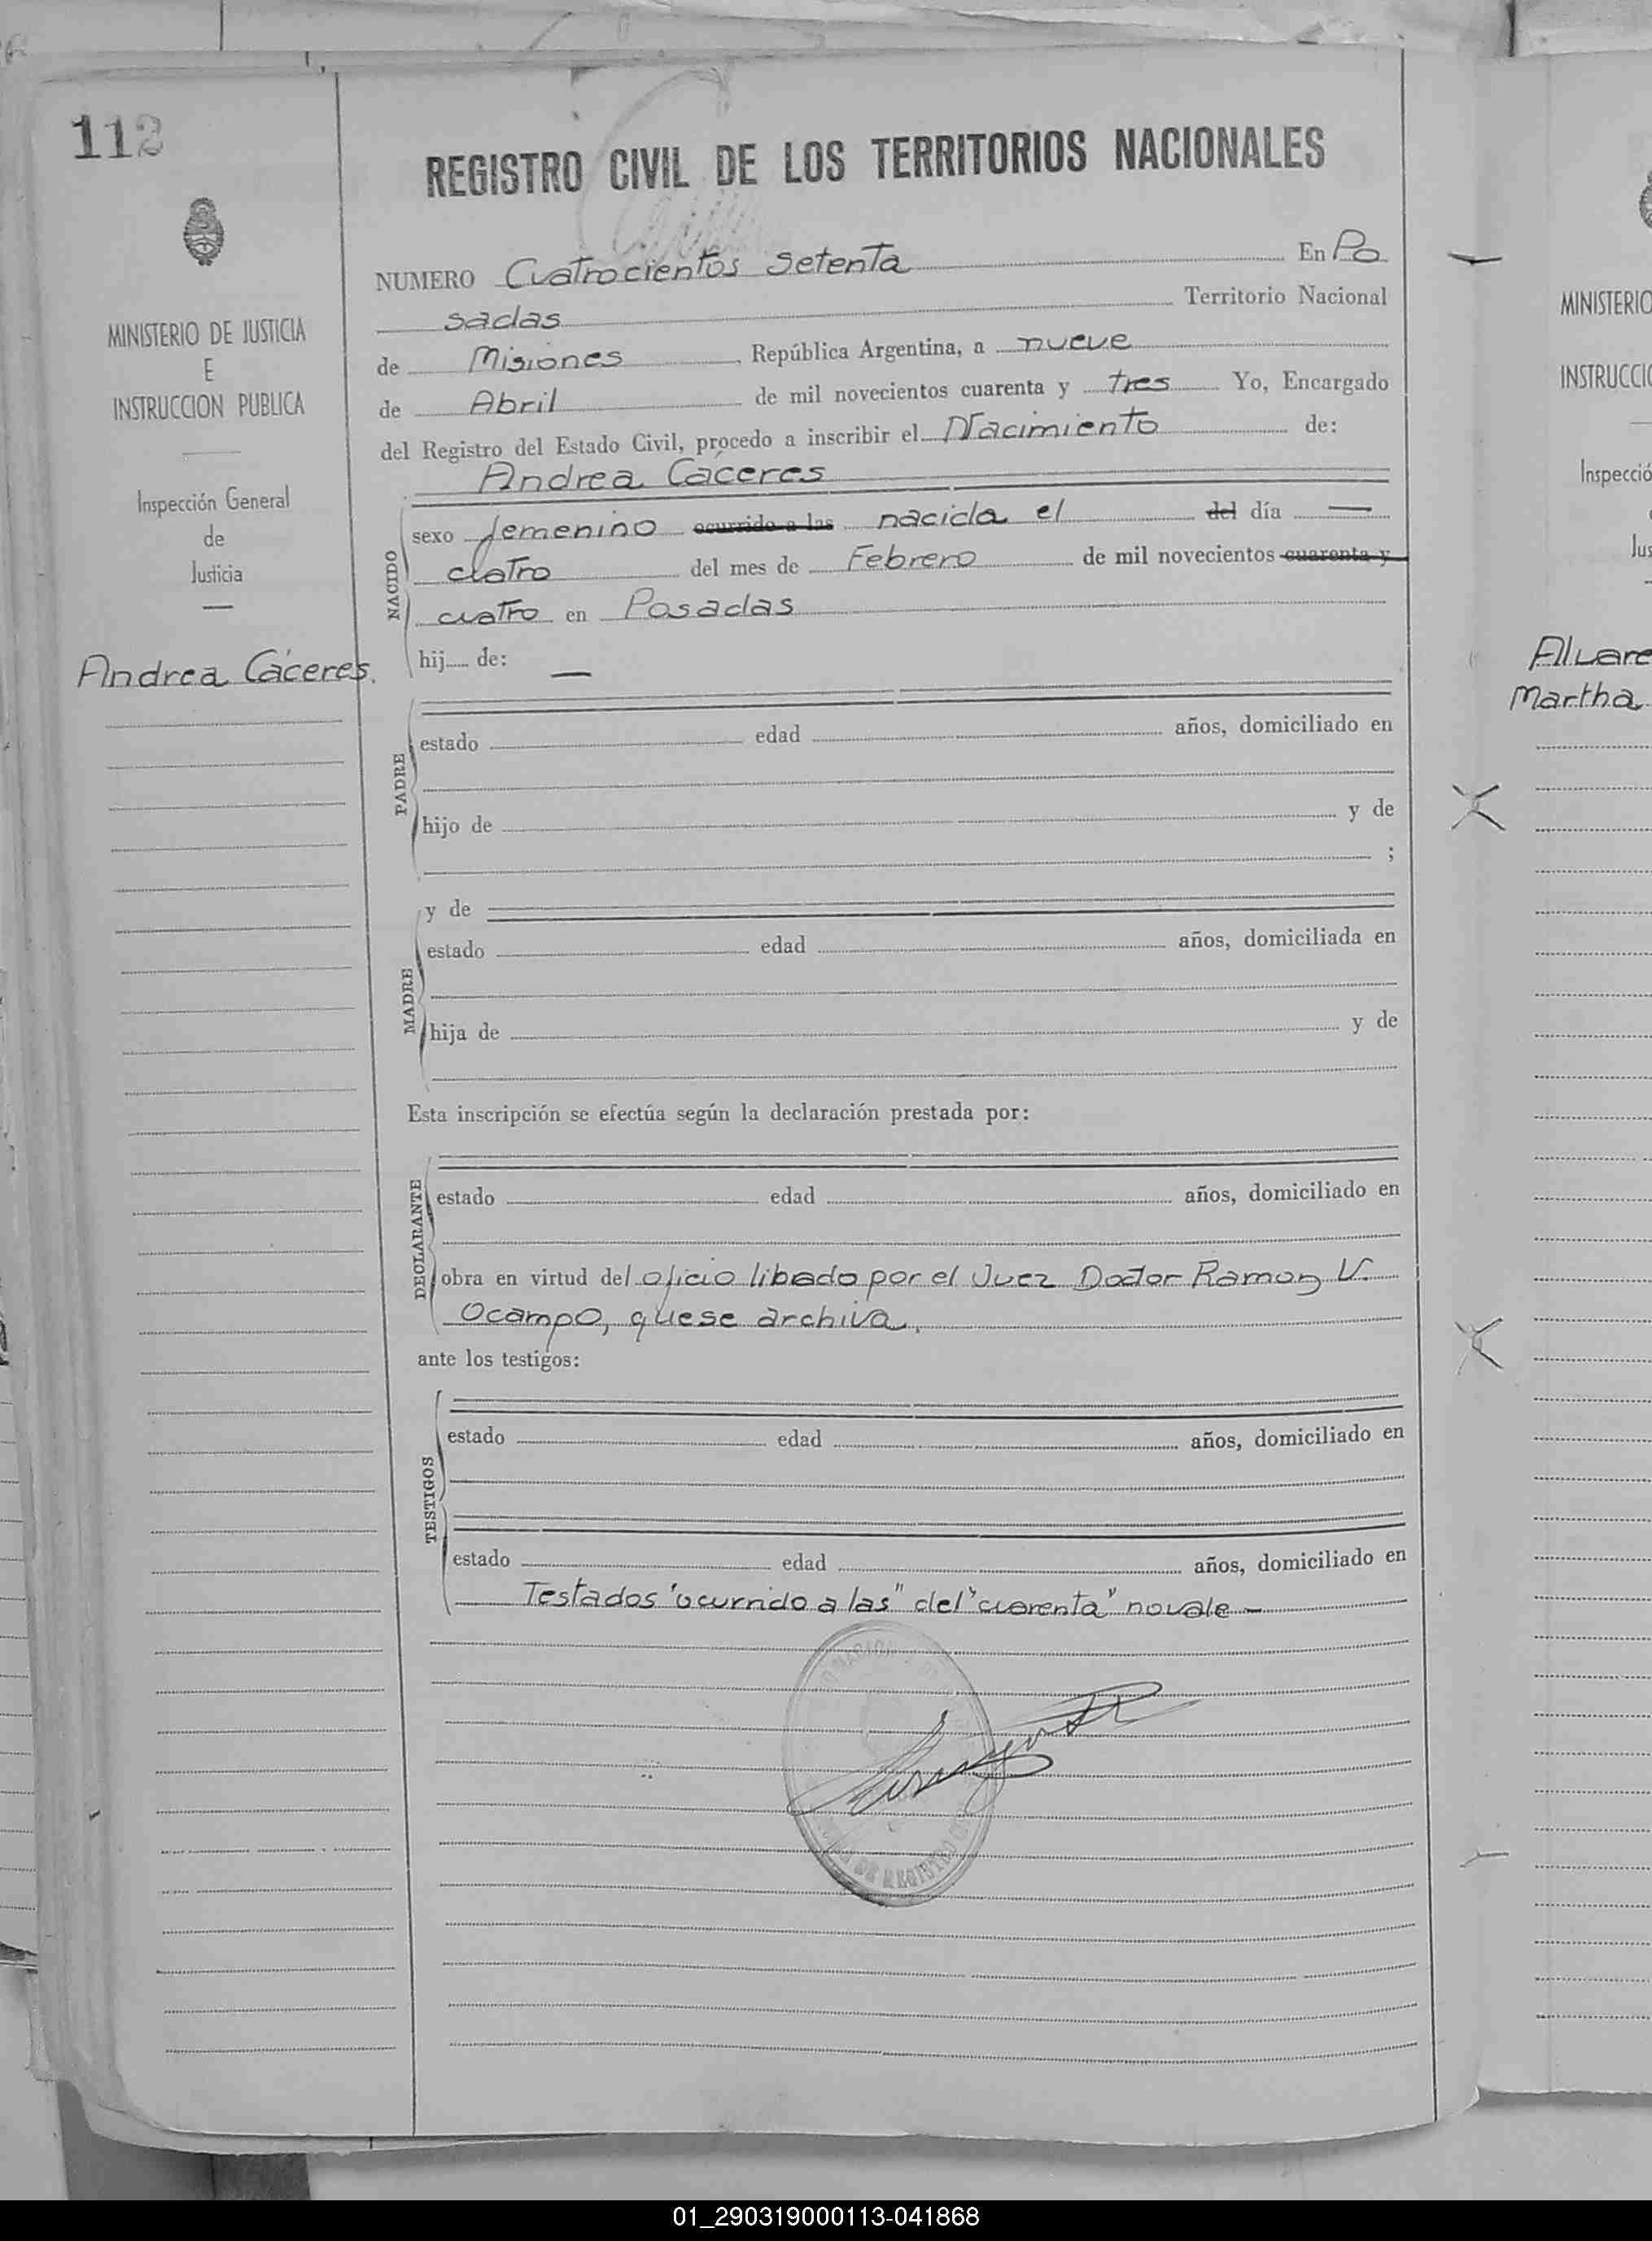 112
REGISTRO CIVIL DE LOS TERRITORIOS NACIONALES
NUMERO Cuatrocientos setenta En Po
sadas Territorio Nacional
de Misiones República Argentina, a nueve
de Abril de mil novecientos cuarenta y tres Yo, Encargado
del Registro del Estado Civil, procedo a inscribir el Nacimiento de:
Andrea Cáceres
NACIDO
sexo femenino ocurrido a las nacida el del día —
clatro del mes de Febrero de mil novecientos cuarenta y
cuatro en Posadas
hij de: —
PADRE
estado edad años, domiciliado en
hijo de y de
;
MADRE
y de
estado edad años, domiciliada en
hija de y de
Esta inscripción se efectúa según la declaración prestada por:
DECLARANTE
estado edad años, domiciliado en
obra en virtud del oficio librado por el Juez Doctor Ramon V.
Ocampo, quese archiva.
ante los testigos:
TESTIGOS
estado edad años, domiciliado en
estado edad años, domiciliado en
Testados "ocurrido a las" del "cuarenta" novale -
DE REGISTRO
MINISTERIO DE JUSTICIA
E
INSTRUCCION PUBLICA
Inspección General
de
Justicia
Andrea Cáceres.
MINISTERIO
INSTRUCCI
Inspecció
Jus
Alvare
Martha
01_290319000113-041868